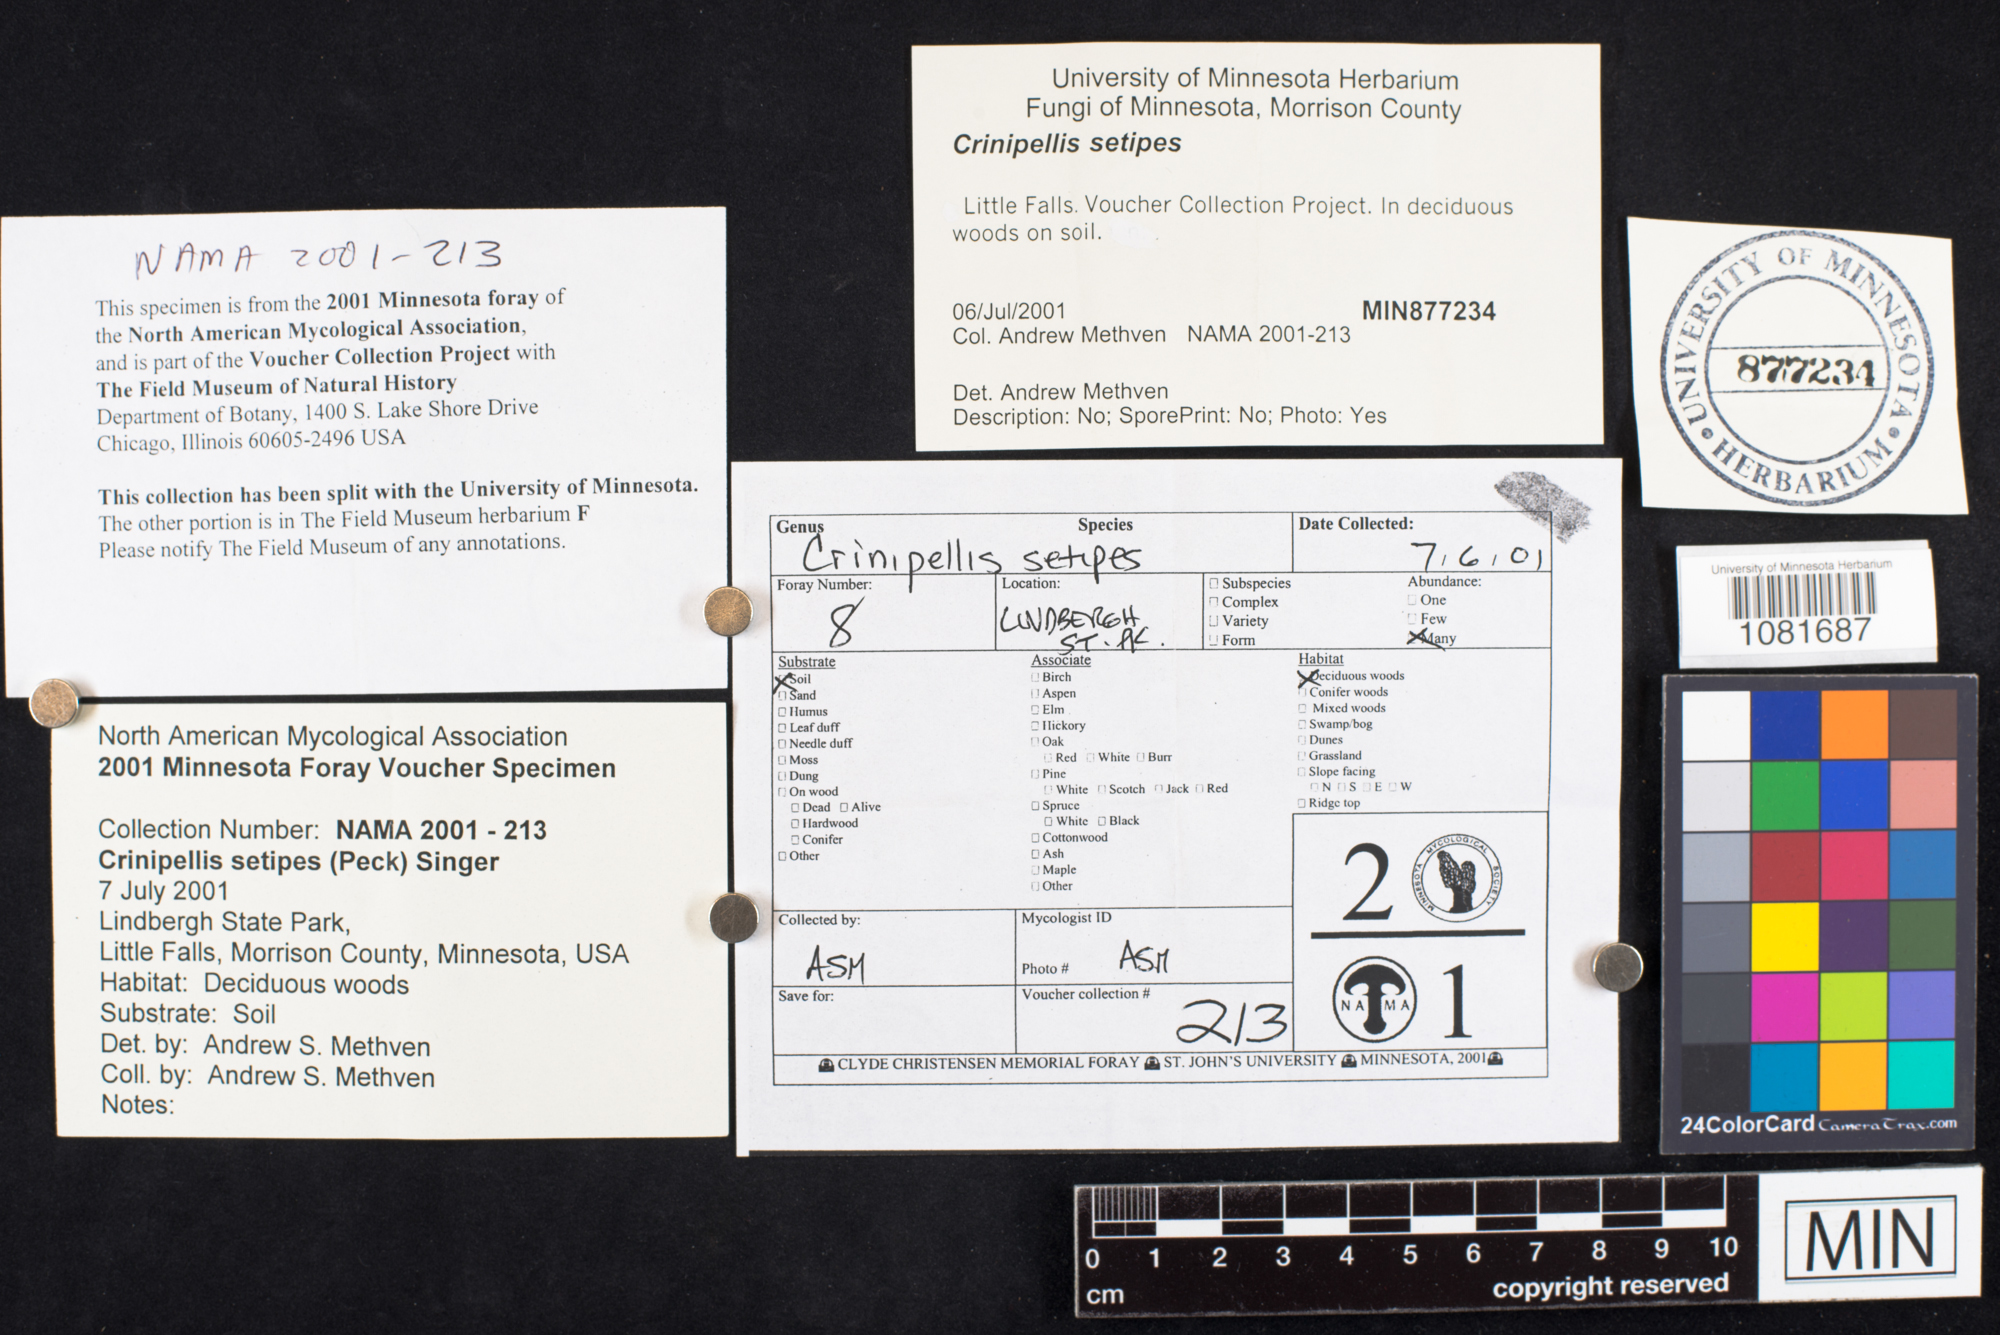 University of Minnesota Herbarium
Fungi of Minnesota, Morrison County
Crinipellis setipes
Little Falls. Voucher Collection Project. In deciduous
woods on soil.
06/Jul/2001 MIN877234
Col. Andrew Methven NAMA 2001-213
Det. Andrew Methven
Description: No; SporePrint: No; Photo: Yes
NAMA 2001-213
This specimen is from the 2001 Minnesota foray of
the North American Mycological Association,
and is part of the Voucher Collection Project with
The Field Museum of Natural History
Department of Botany, 1400 S. Lake Shore Drive
Chicago, Illinois 60605-2496 USA
This collection has been split with the University of Minnesota.
The other portion is in The Field Museum herbarium F
Please notify The Field Museum of any annotations.
UNIVERSITY OF MINNESOTA
877234
• HERBARIUM •
University of Minnesota Herbarium
1081687
North American Mycological Association
2001 Minnesota Foray Voucher Specimen
Collection Number: NAMA 2001 - 213
Crinipellis setipes (Peck) Singer
7 July 2001
Lindbergh State Park,
Little Falls, Morrison County, Minnesota, USA
Habitat: Deciduous woods
Substrate: Soil
Det. by: Andrew S. Methven
Coll. by: Andrew S. Methven
Notes:
Genus Species Date Collected:
Crinipellis setipes 7,6,01
Foray Number: Location: Subspecies Abundance:
8 LINDBERGH Complex One
ST. PK. Variety Few
Form Many
Substrate Associate Habitat
Soil Birch Deciduous woods
Sand Aspen Conifer woods
Humus Elm Mixed woods
Leaf duff Hickory Swamp/bog
Needle duff Oak Dunes
Moss Red White Burr Grassland
Dung Pine Slope facing
On wood White Scotch Jack Red N S E W
Dead Alive Spruce Ridge top
Hardwood White Black
Conifer Cottonwood
Other Ash
Maple
Other
2 MINNESOTA MYCOLOGICAL SOCIETY
NAMA 1
Collected by: Mycologist ID
ASM ASM
Photo #
Save for: Voucher collection #
213
CLYDE CHRISTENSEN MEMORIAL FORAY ST. JOHN'S UNIVERSITY MINNESOTA, 2001
24ColorCard CameraTrax.com
0 1 2 3 4 5 6 7 8 9 10
cm copyright reserved
MIN